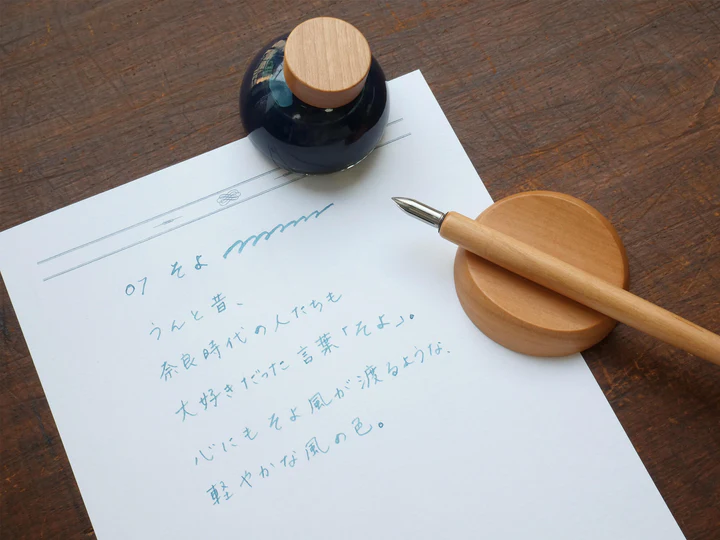 07 そよ
うんと昔、
奈良時代の人たちも
大好きだった言葉「そよ」。
心にもそよ風が渡るような、
軽やかな風の色。